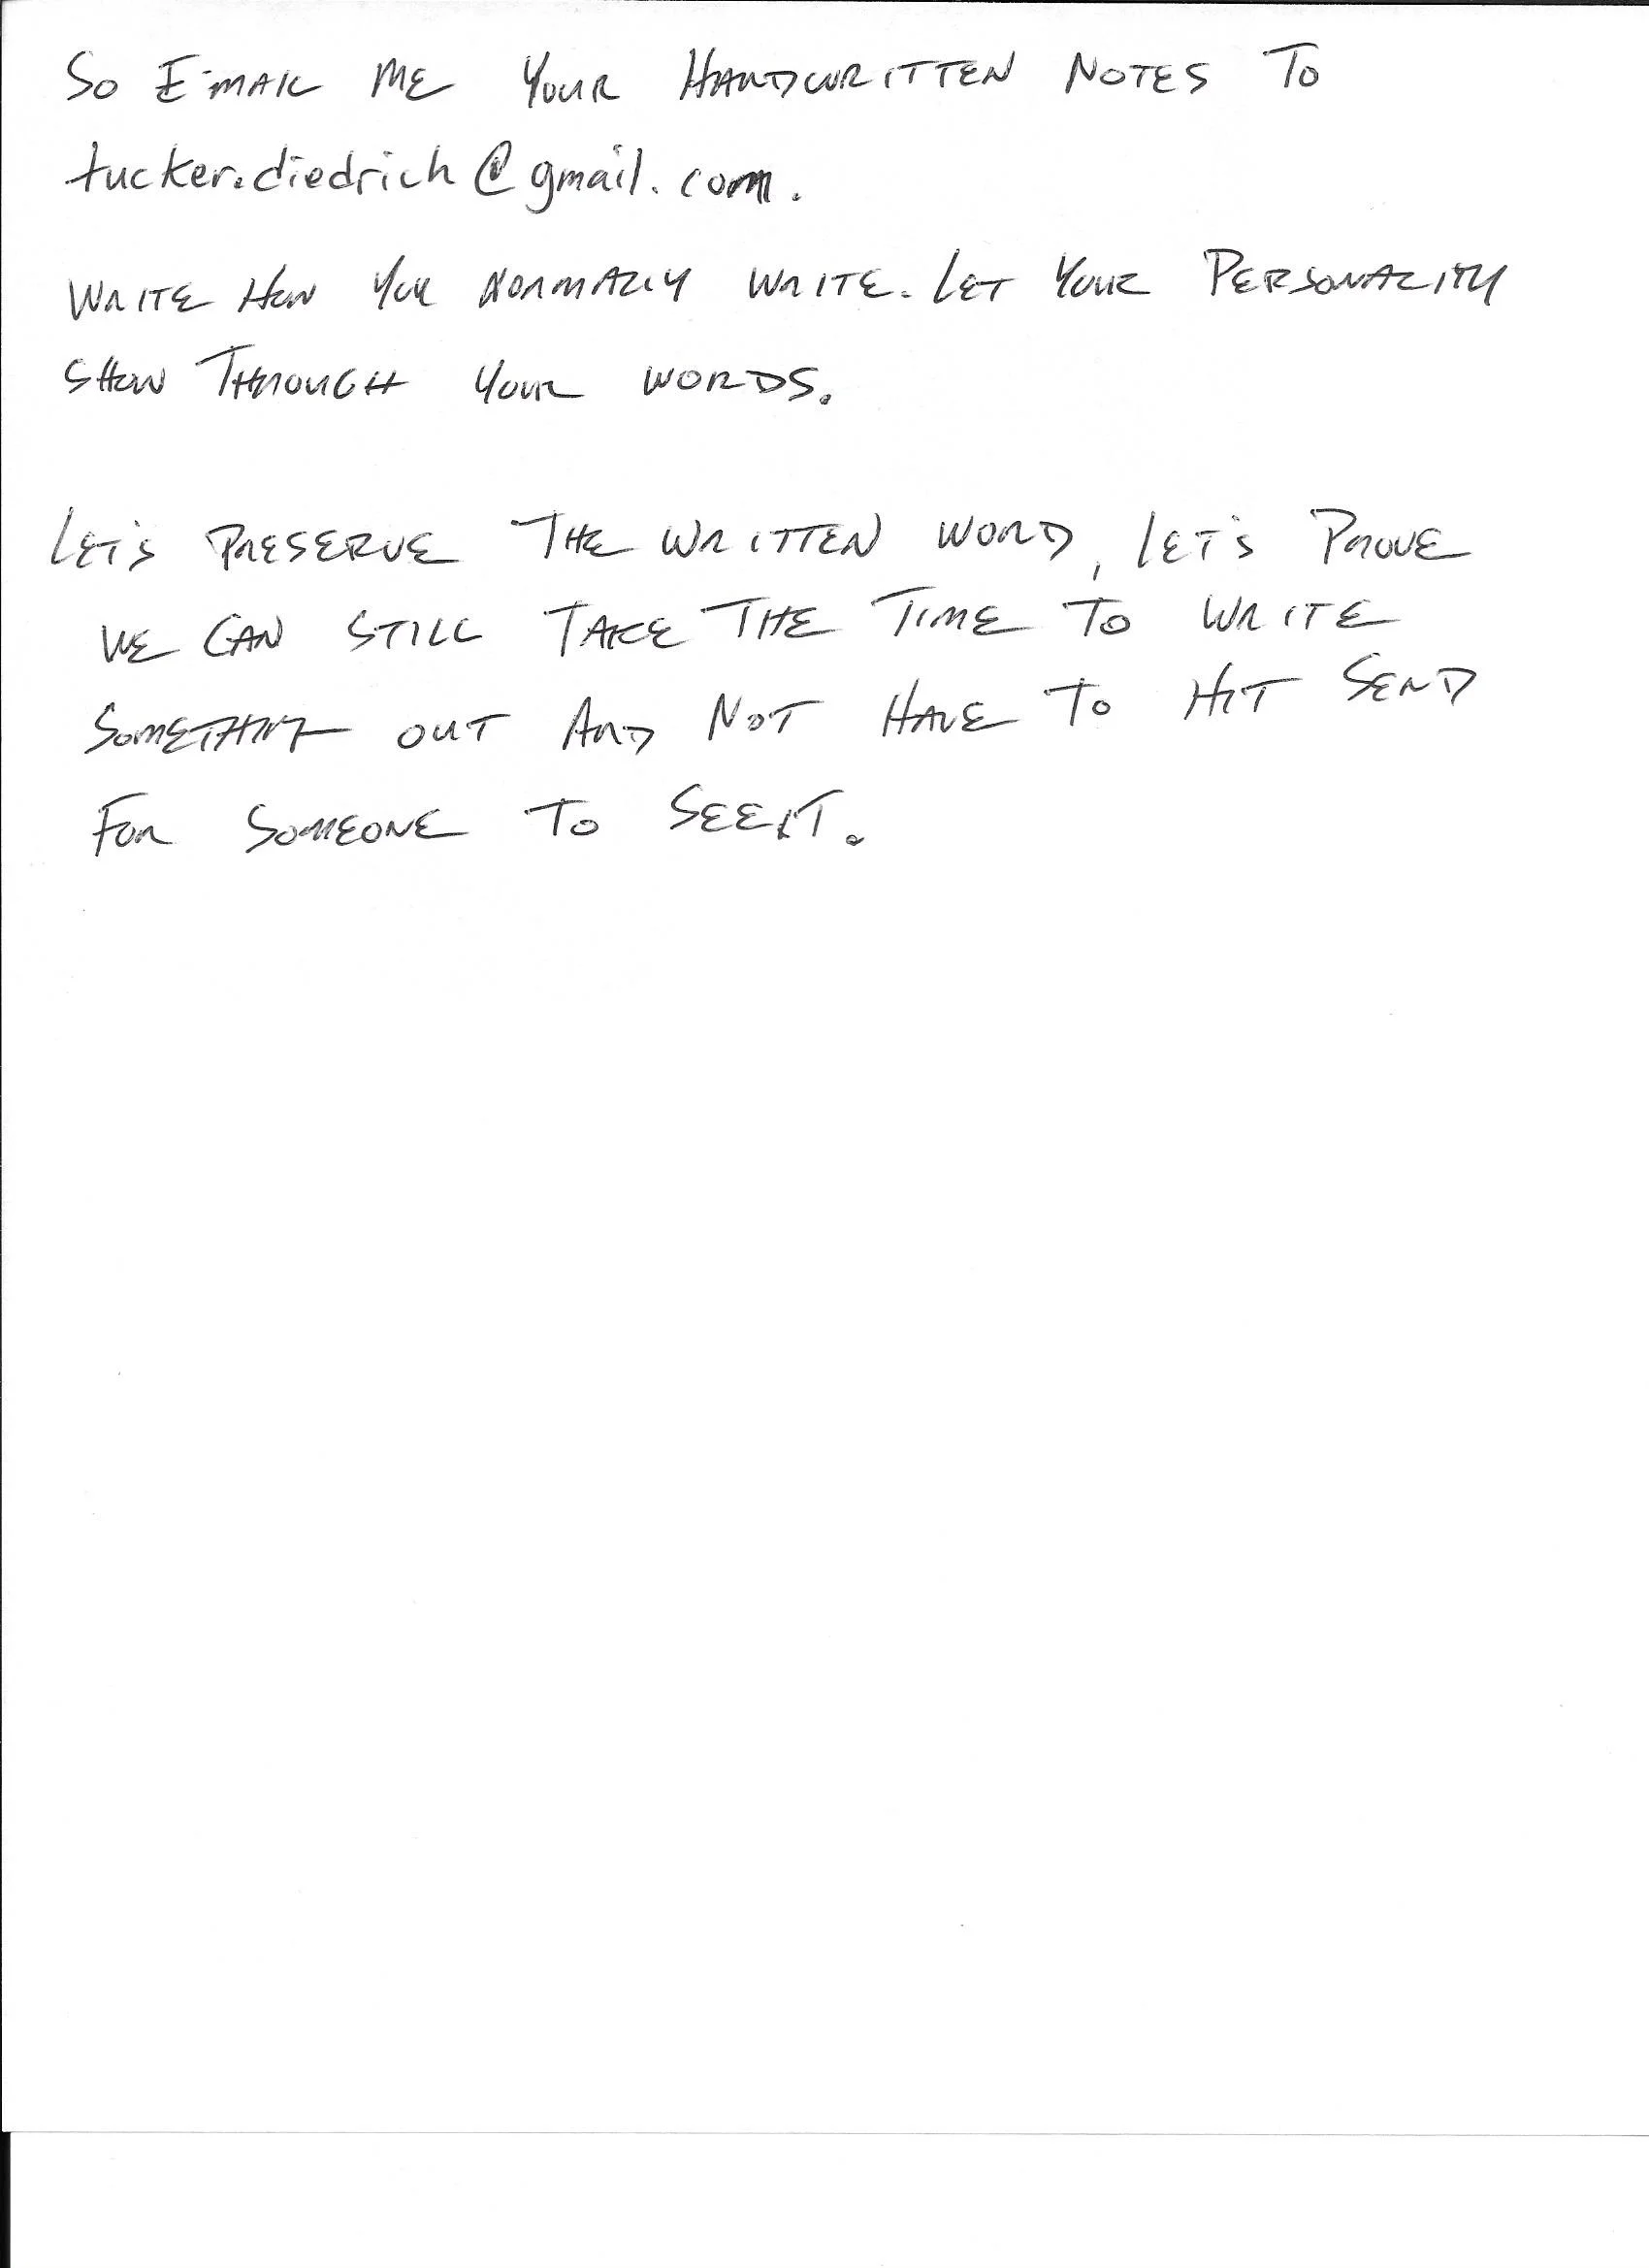 SO E-MAIL ME YOUR HANDWRITTEN NOTES TO
tucker.diedrich@gmail.com.
WRITE HOW YOU NORMALLY WRITE. LET YOUR PERSONALITY
SHOW THROUGH YOUR WORDS.
LET'S PRESERVE THE WRITTEN WORD, LET'S PROVE
WE CAN STILL TAKE THE TIME TO WRITE
SOMETHING OUT AND NOT HAVE TO HIT SEND
FOR SOMEONE TO SEE IT.